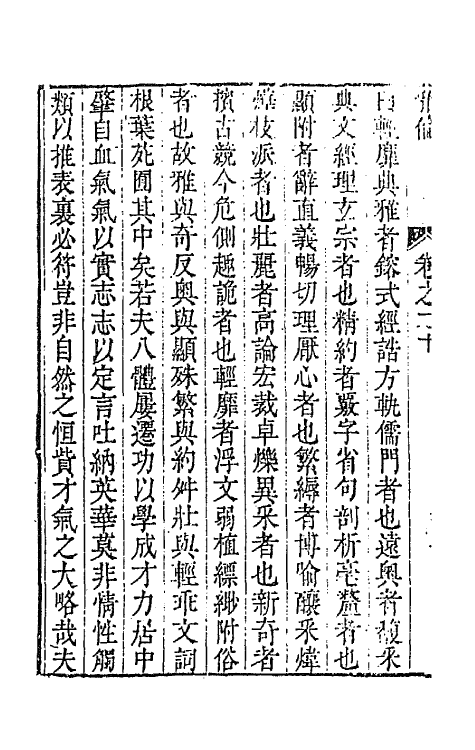 卷之二十
曰輕靡典雅者鎔式經誥方軌儒門者也遠奧者馥釆
典文經理玄宗者也精約者覈字省句剖析毫釐者也
顯附者辭直義暢切理厭心者也繁縟者博喻釀釆煒
燁枝派者也壯麗者高論宏裁卓爍異釆者也新奇者
擯古競今危側趣詭者也輕靡者浮文弱植縹緲附俗
者也故雅與奇反奧與顯殊繁與約舛壯與輕乖文詞
根葉苑囿其中矣若夫八體屢遷功以學成才力居中
肇自血氣氣以實志志以定言吐納英華莫非情性觸
類以推表裏必符豈非自然之恒貲才氣之大略哉夫